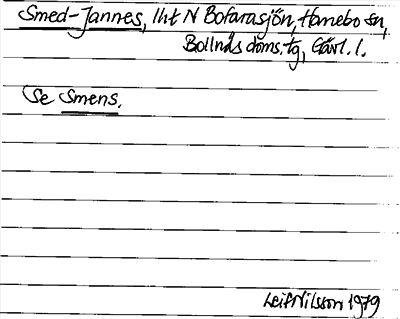 Smed-Jannes, lht N Bofarasjön, Hanebo sn,
Bollnäs doms.tg, Gävl. l.
Se Smens.
Leif Nilsson 1979